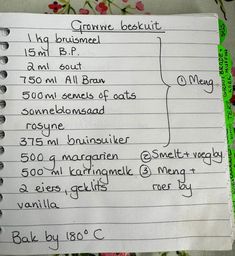 Growwe beskuit
1 kg bruismeel
15 ml B.P.
2 ml sout
750 ml All Bran
① Meng
500 ml semels of oats
sonneblomsaad
rosyne
375 ml bruinsuiker
500 g margarien ② Smelt + voeg by
500 ml karringmelk ③ Meng +
2 eiers, geklits roer by
vanilla
Bak by 180° C